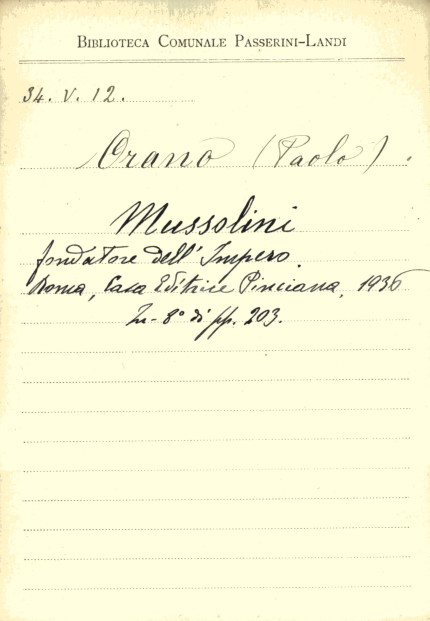 BIBLIOTECA COMUNALE PASSERINI-LANDI
34. V. 12.
Orano (Paolo).
Mussolini
fondatore dell'Impero.
Roma, Casa Editrice Pinciana, 1936
In-8° di pp. 203.